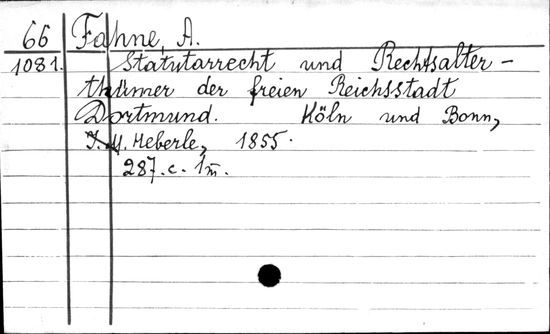 66 Fahne, A.
1081. Statutarrecht und Rechtsalter-
thümer der freien Reichsstadt
Dortmund. Köln und Bonn,
J. M. Heberle, 1855.
287. c. 1 m.